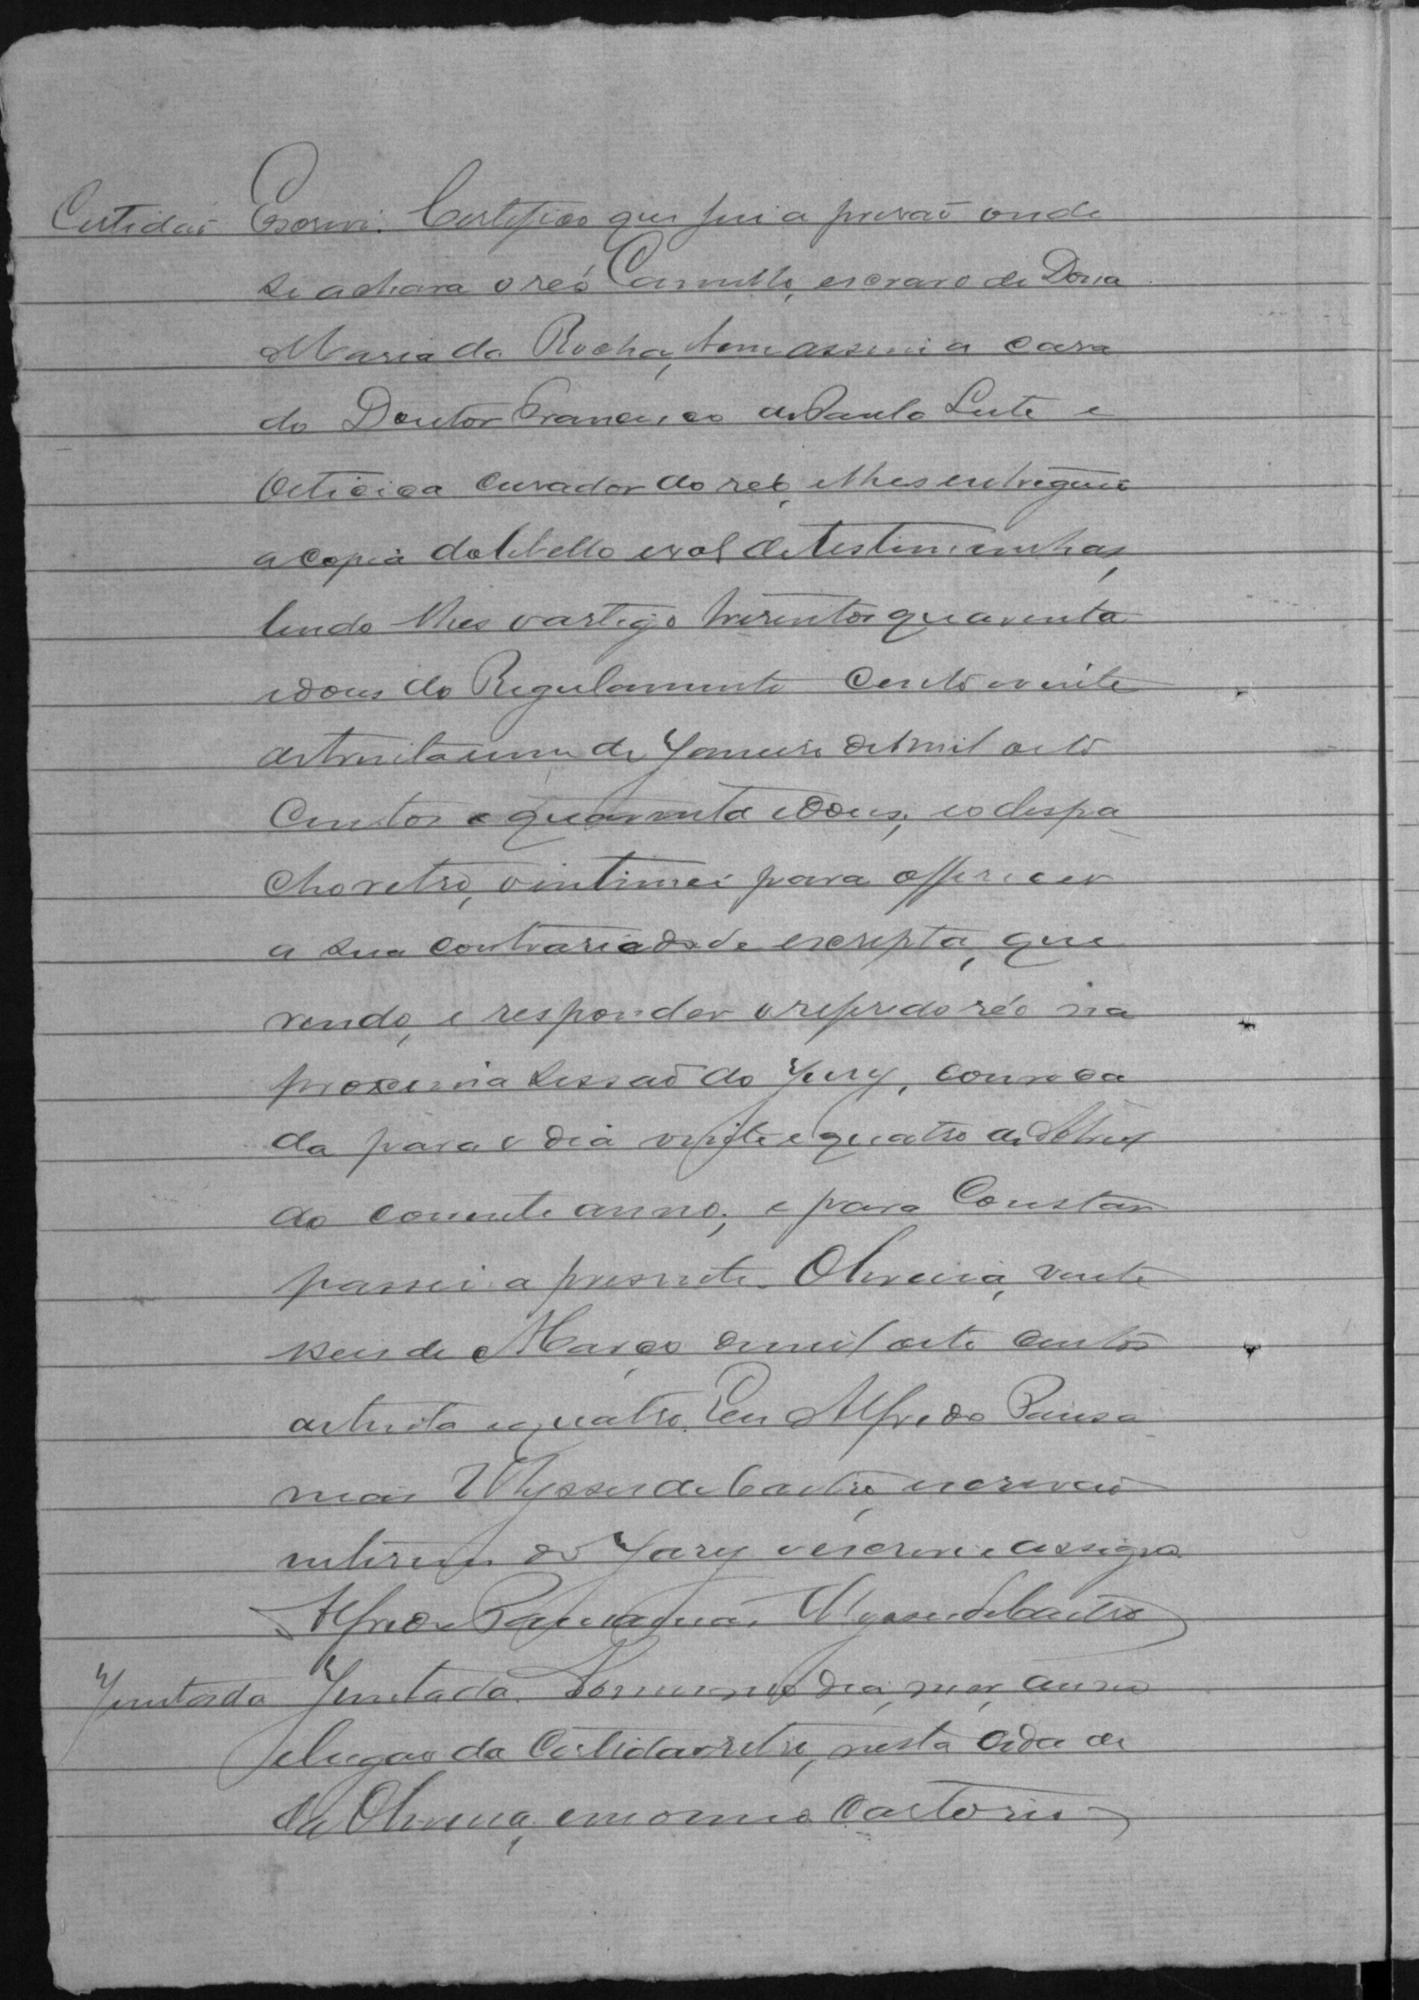 Certidaõ Escrevi. Certifico que fui a prisaõ onde
se achava o reó Camillo, escravo de Dona
Maria da Rocha, bem assim a casa
do Doutor Francisco de Paula Leite e
Oiticica curador do reó, e lhes entreguei
a copia do libello e rol de testimunhas,
lendo lhes o artigo trisentos quarenta
e dous do Regulamento cento e vinte
de trinta e um de Janeiro de mil oito
centos e quarenta e dous, e o despa
cho retro, o intimei para offerecer
a sua contrariedade escripta, que
rendo, e responder o referido réo na
proxima sessaõ do Jury, convoca
da para o dia vinte e quatro de Abril
do corrente anno; e para constar
passei a presente. Oliveira, vinte
seis de Março de mil oito centos
oitenta e quatro. Eu Alfredo Parna
mas Ulysses de Castro, escrivaõ
interino do Jury o escrevi e assigno.
Alfredo Ulysses de Castro
Juntada Juntada. No mesmo dia, mez, anno
e lugar da certidaõ retro, nesta cidade
de Oliveira, em o meu cartorio